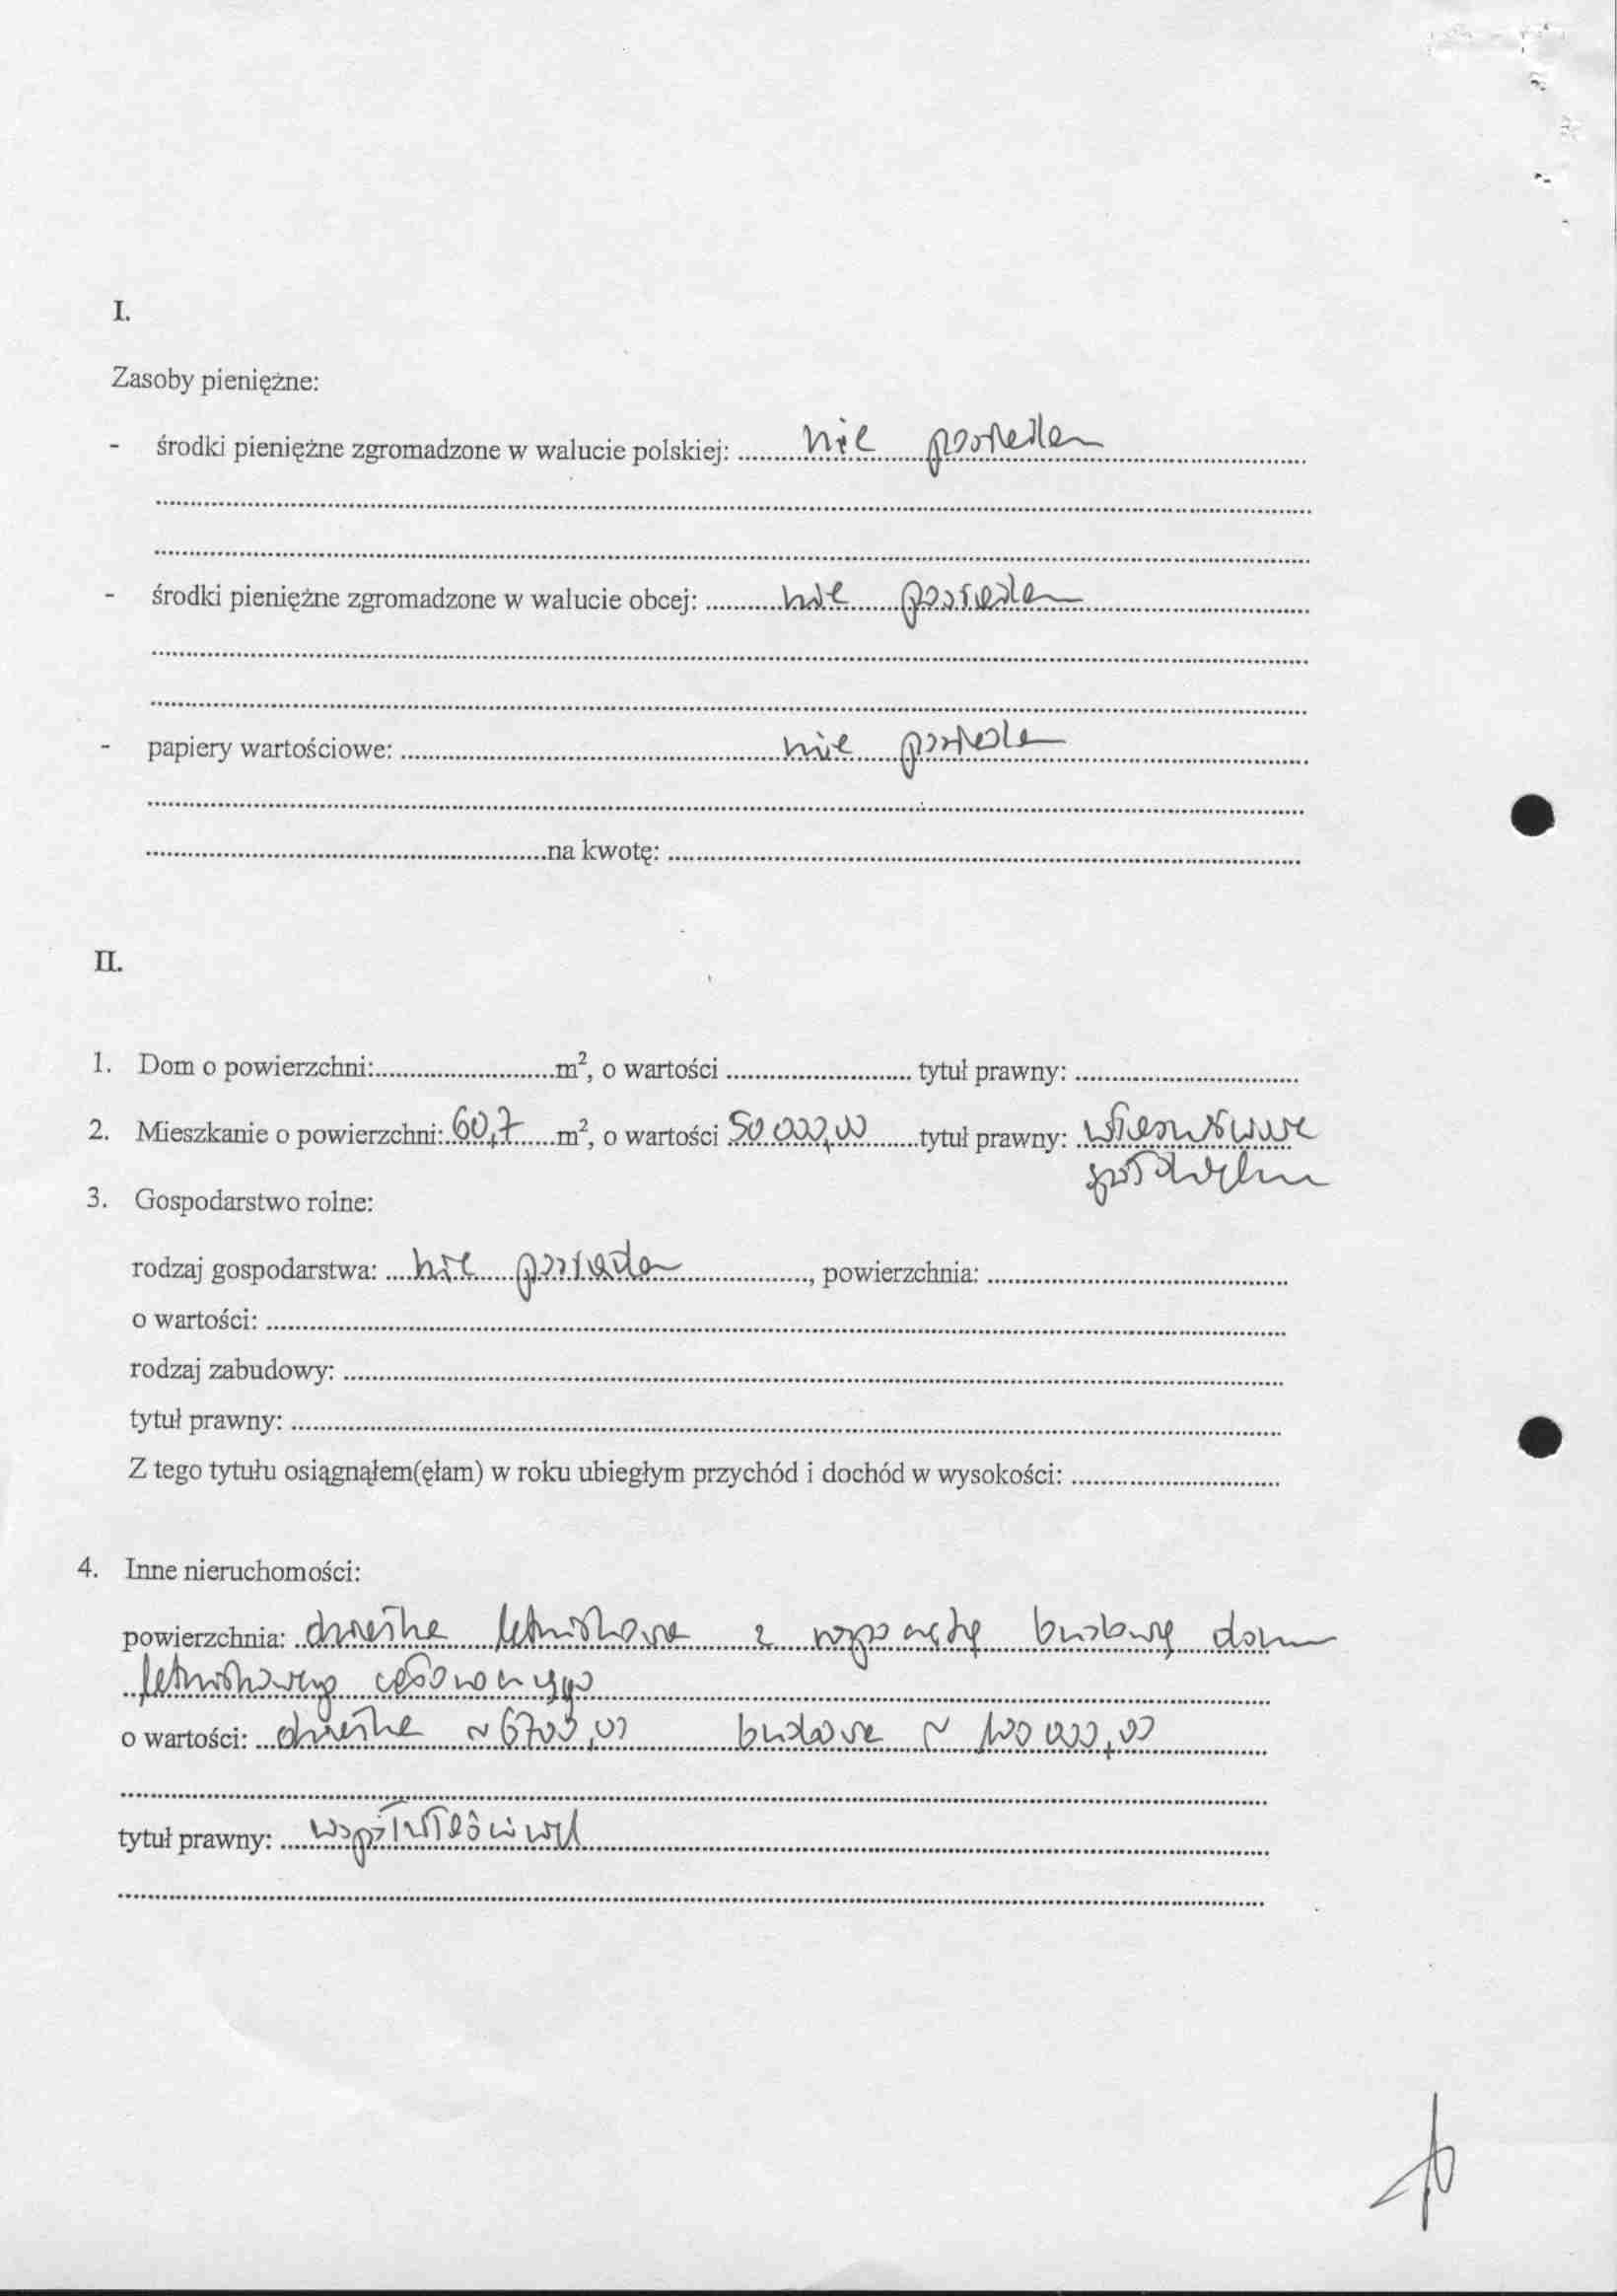 I.
Zasoby pieniężne:
- środki pieniężne zgromadzone w walucie polskiej: ........ nie posiadam ........
........
........
- środki pieniężne zgromadzone w walucie obcej: ........ nie posiadam ........
........
........
- papiery wartościowe: ........ nie posiadam ........
........
........ na kwotę: ........
II.
1. Dom o powierzchni: ........ m², o wartości ........ tytuł prawny: ........
2. Mieszkanie o powierzchni: 60,7 m², o wartości 50 000,00 tytuł prawny: własnościowe
3. Gospodarstwo rolne:
rodzaj gospodarstwa: .... nie posiadam ........, powierzchnia: ........
o wartości: ........
rodzaj zabudowy: ........
tytuł prawny: ........
Z tego tytułu osiągnąłem(ęłam) w roku ubiegłym przychód i dochód w wysokości: ........
4. Inne nieruchomości:
powierzchnia: działka letniskowa z rozpoczętą budową domu
letniskowego całorocznego
o wartości: działka ~ 6700,00 budowa ~ 100 000,00
........
tytuł prawny: .... współwłaściciel ........
........